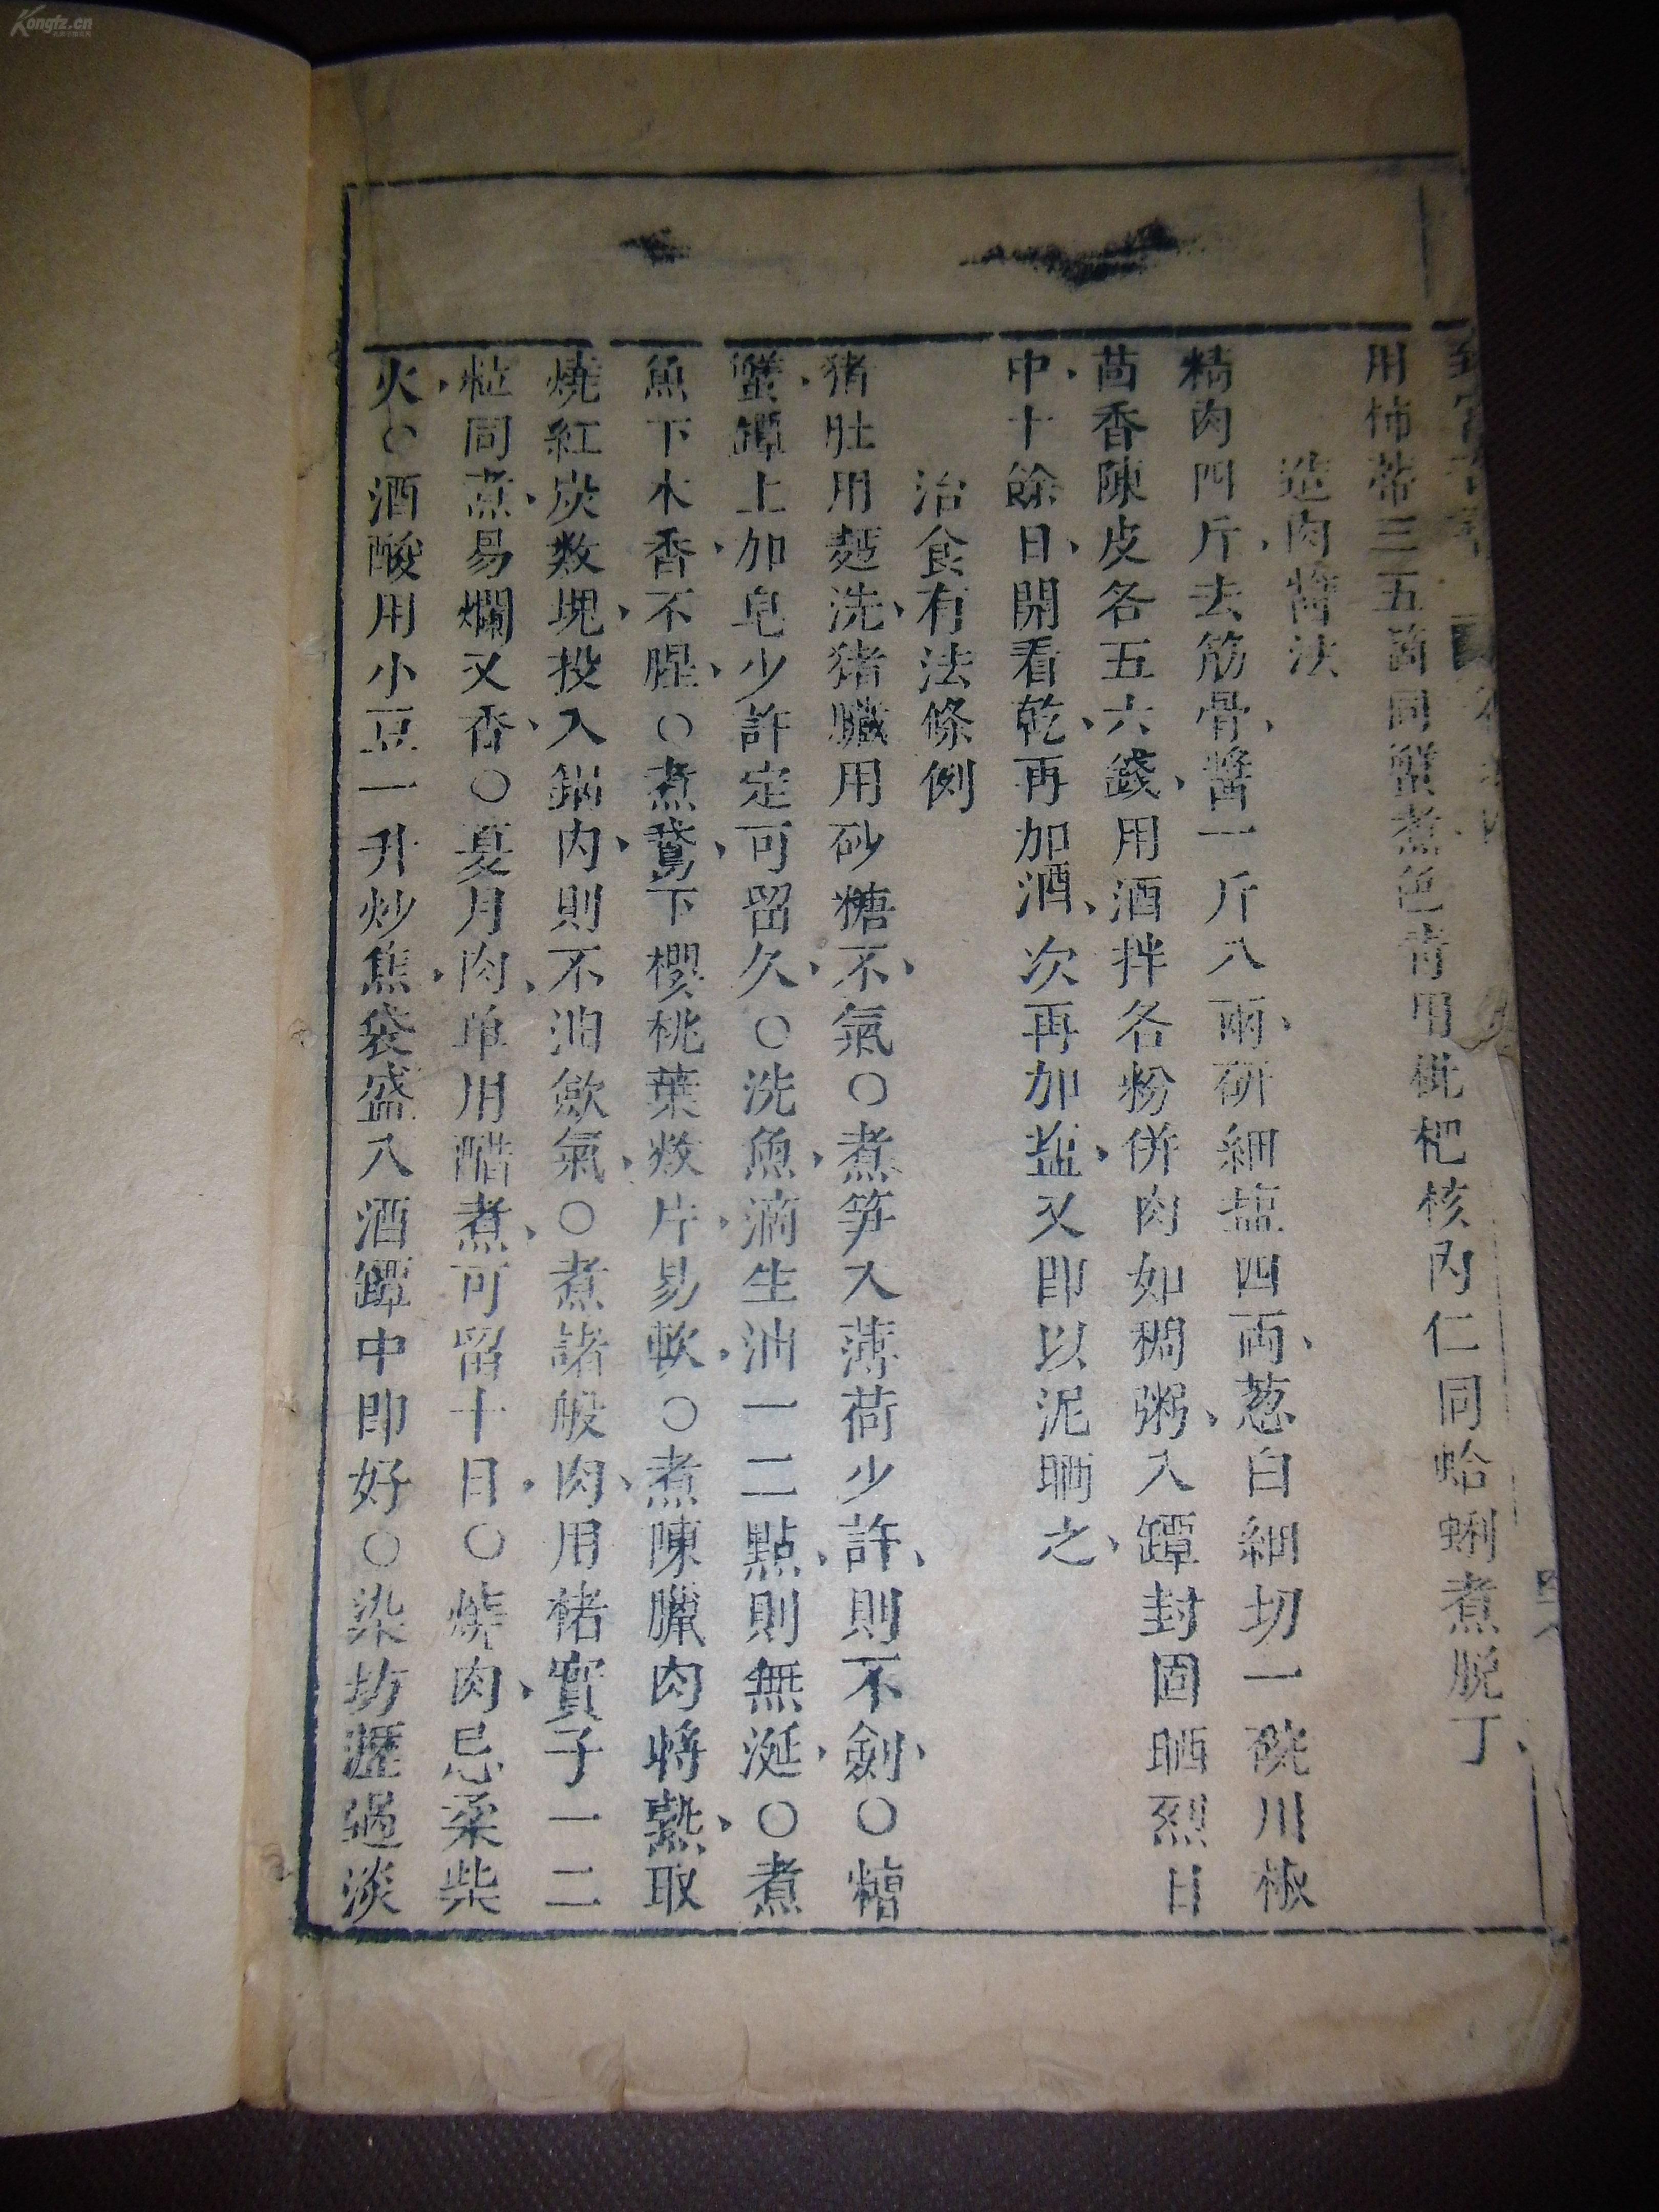 用柿蒂三五箇同蟹煮色青用枇杷核內仁同蛤蜊煮脫丁、
造肉醬法
精肉四斤、去筋骨、醬一斤八兩、研細盐四両、葱白細切一碗川椒
茴香陳皮各五六錢、用酒拌各粉併肉如稠粥、入罈封固晒烈日
中、十餘日、開看乾、再加酒、次再加盐、又即以泥晒之、
治食有法條例
猪肚用麪洗、猪臟用砂糖不、氣〇煮笋入薄荷少許、則不劍、〇糟
蟹、罈上加皂少許定可留久、〇洗魚、滴生油一二點、則無涎、〇煮
魚下木香、不腥、〇煮鵞、下櫻桃葉数片、易軟、〇煮陳臘肉將熟、取
燒紅炭数塊、投入鍋內、則不油歛氣、〇煮諸般肉、用楮實子一二
粒同煮、易爛又香、〇夏月肉、单用醋煮、可留十日、〇燒肉、忌柔柴
火、〇酒酸用小豆一升炒焦、袋盛入酒罈中即好〇染坊瀝過淡
Kongfz.cn